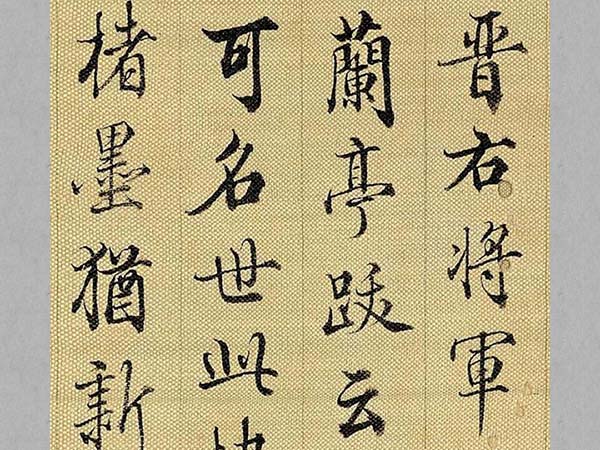 晋右将軍
蘭亭跋云
可名世此
楮墨猶新